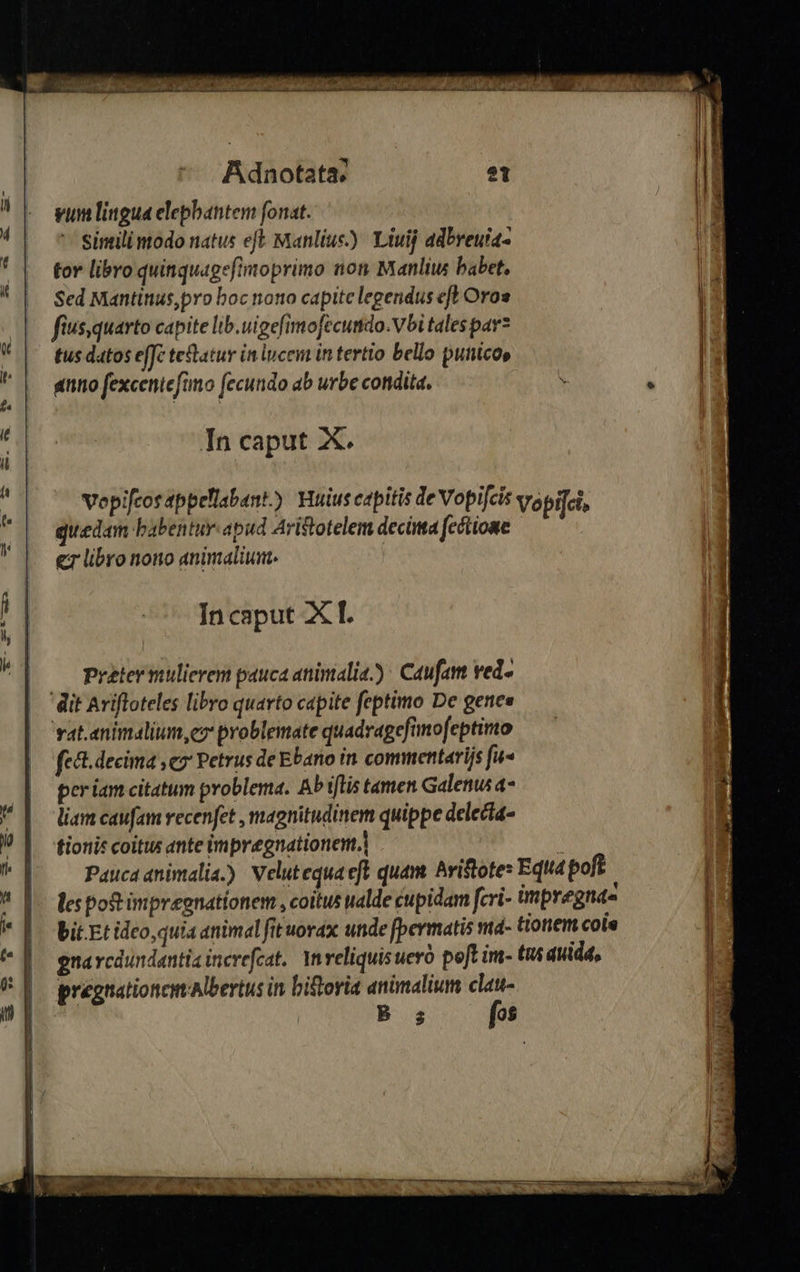 Adnotata. 21
rum lingua elephantem ſonat.
Simili modo natus eſt Manlius.) Liuij adbreuia-
tor libro quinquageſimoprimo non Manlius habet,
Sed Mantinus, pro hoc nono capite legendus eſt Oros
ſius, quarto capite lib. uigeſimoſecundo. Vbi tales par-
tus datos eſſe teſtatur in lucem in tertio bello punico,
anno ſexcenteſimo ſecundo ab urbe condita.
In caput X.
Vopiſcos appellabant.) Huius capitis de Vopiſcis Vopiſci,
quædam habentur apud Ariſtotelem decima ſectione
& libro nono animalium.
In caput XI.
Præter mulierem pauca animalia.) Cauſam red-
dit Ariſtoteles libro quarto capite ſeptimo De gene-
rat. animalium, & problemate quadrageſimoſeptimo
ſect. decima, & Petrus de Ebano in commentarijs ſu-
per iam citatum problema. Ab iſtis tamen Galenus a-
liam cauſam recenſet, magnitudinem quippe delecta-
tionis coitus ante imprægnationem.
Pauca animalia.) Velut equa eſt quam Ariſtote- Equa poſt
les poſt imprægnationem, coitus ualde cupidam ſcri- imprægna-
bit. Et ideo, quia animal ſit uorax unde ſpermatis ma- tionem coi-
gna redundantia increſcat. In reliquis uerò poſt im- tus auida,
prægnationem Albertus in hiſtoria animalium clau-
B 3 ſos